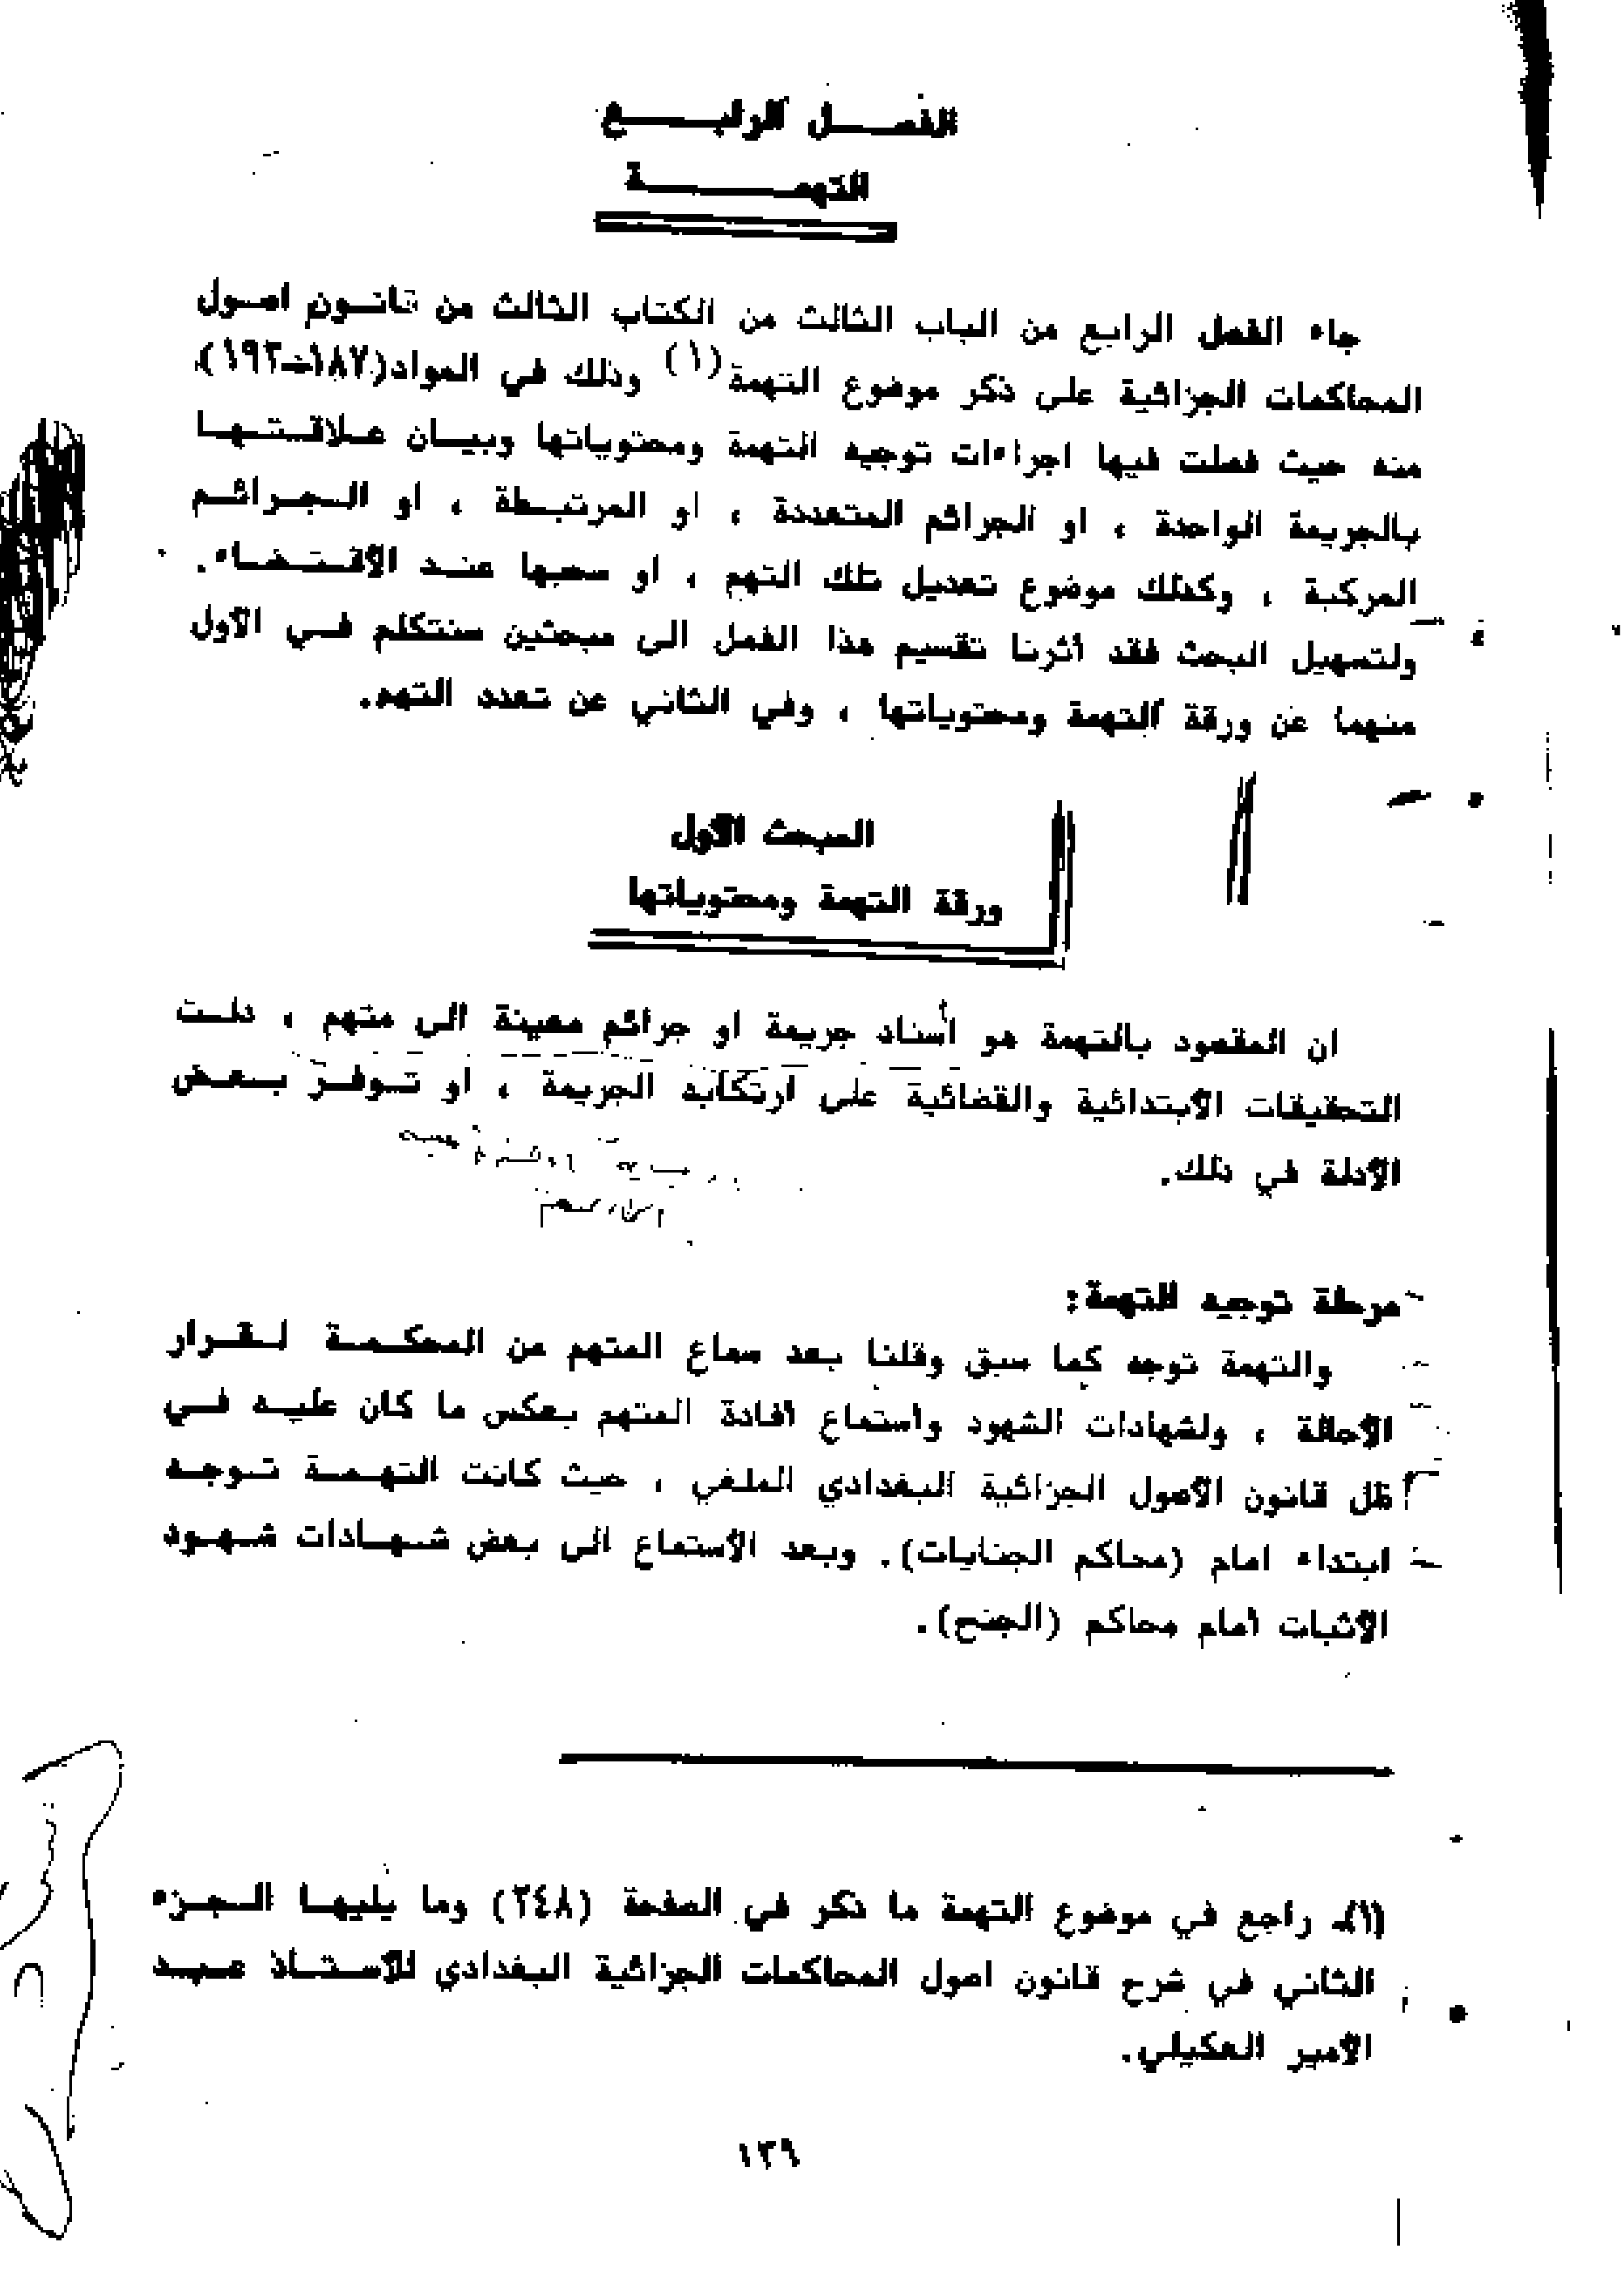 الفصل الرابع
التهمة
جاء الفصل الرابع من الباب الثالث من الكتاب الثالث من قانون اصول
المحاكمات الجزائية على ذكر موضوع التهمة (١) وذلك في المواد (١٨٧-١٩٣)
منه حيث فصلت فيها اجراءات توجيه التهمة ومحتوياتها وبيان علاقتها
بالجريمة الواحدة ، او الجرائم المتعددة ، او المرتبطة ، او الجرائم
المركبة ، وكذلك موضوع تعديل تلك التهم ، او سحبها عند الأقتضاء.
ولتسهيل البحث فقد أثرنا تقسيم هذا الفصل الى مبحثين سنتكلم في الاول
منهما عن ورقة التهمة ومحتوياتها ، وفي الثاني عن تعدد التهم.
المبحث الاول
ورقة التهمة ومحتوياتها
ان المقصود بالتهمة هو أسناد جريمة او جرائم معينة الى متهم ، دلت
التحقيقات الأبتدائية والقضائية على أرتكابه الجريمة ، او توفر بعض
الأدلة في ذلك.
مرحلة توجيه التهمة:
والتهمة توجه كما سبق وقلنا بعد سماع المتهم من المحكمة لقرار
الأحالة ، ولشهادات الشهود وأستماع أفادة المتهم بعكس ما كان عليه في
ظل قانون الأصول الجزائية البغدادي الملغي ، حيث كانت التهمة توجه
ابتداء امام (محاكم الجنايات). وبعد الأستماع الى بعض شهادات شهود
الأثبات أمام محاكم (الجنح).
(١)ـ راجع في موضوع التهمة ما ذكر في الصفحة (٢٤٨) وما يليها الجزء
الثاني في شرح قانون اصول المحاكمات الجزائية البغدادي للأستاذ عبد
الأمير العكيلي.
١٣٩